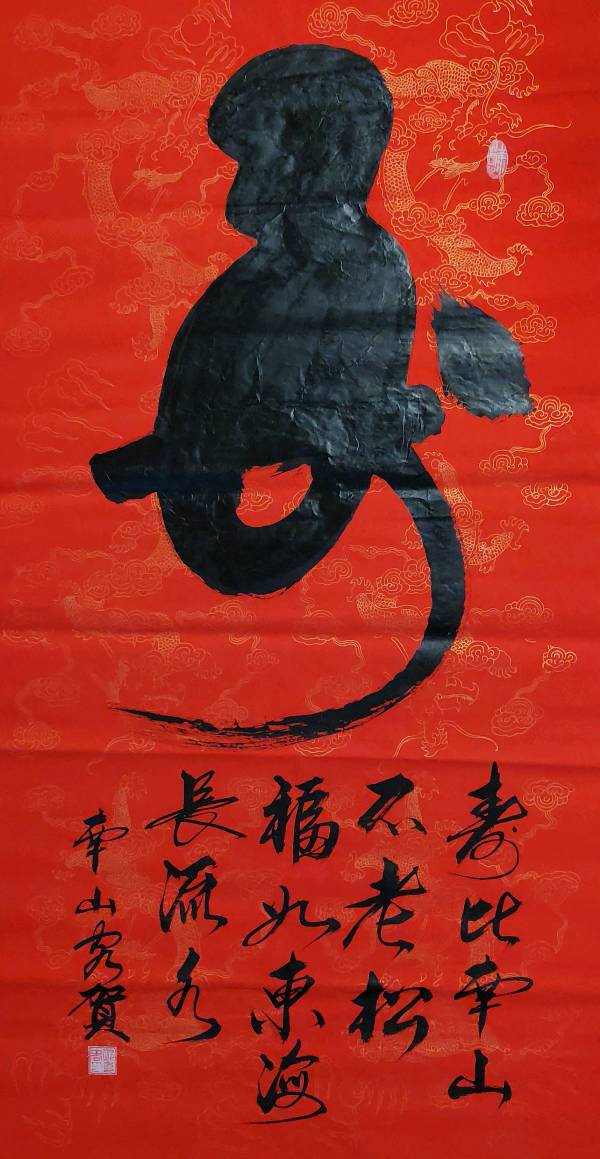 寿
寿比南山
不老松
福如東海
長流水
南山客賀